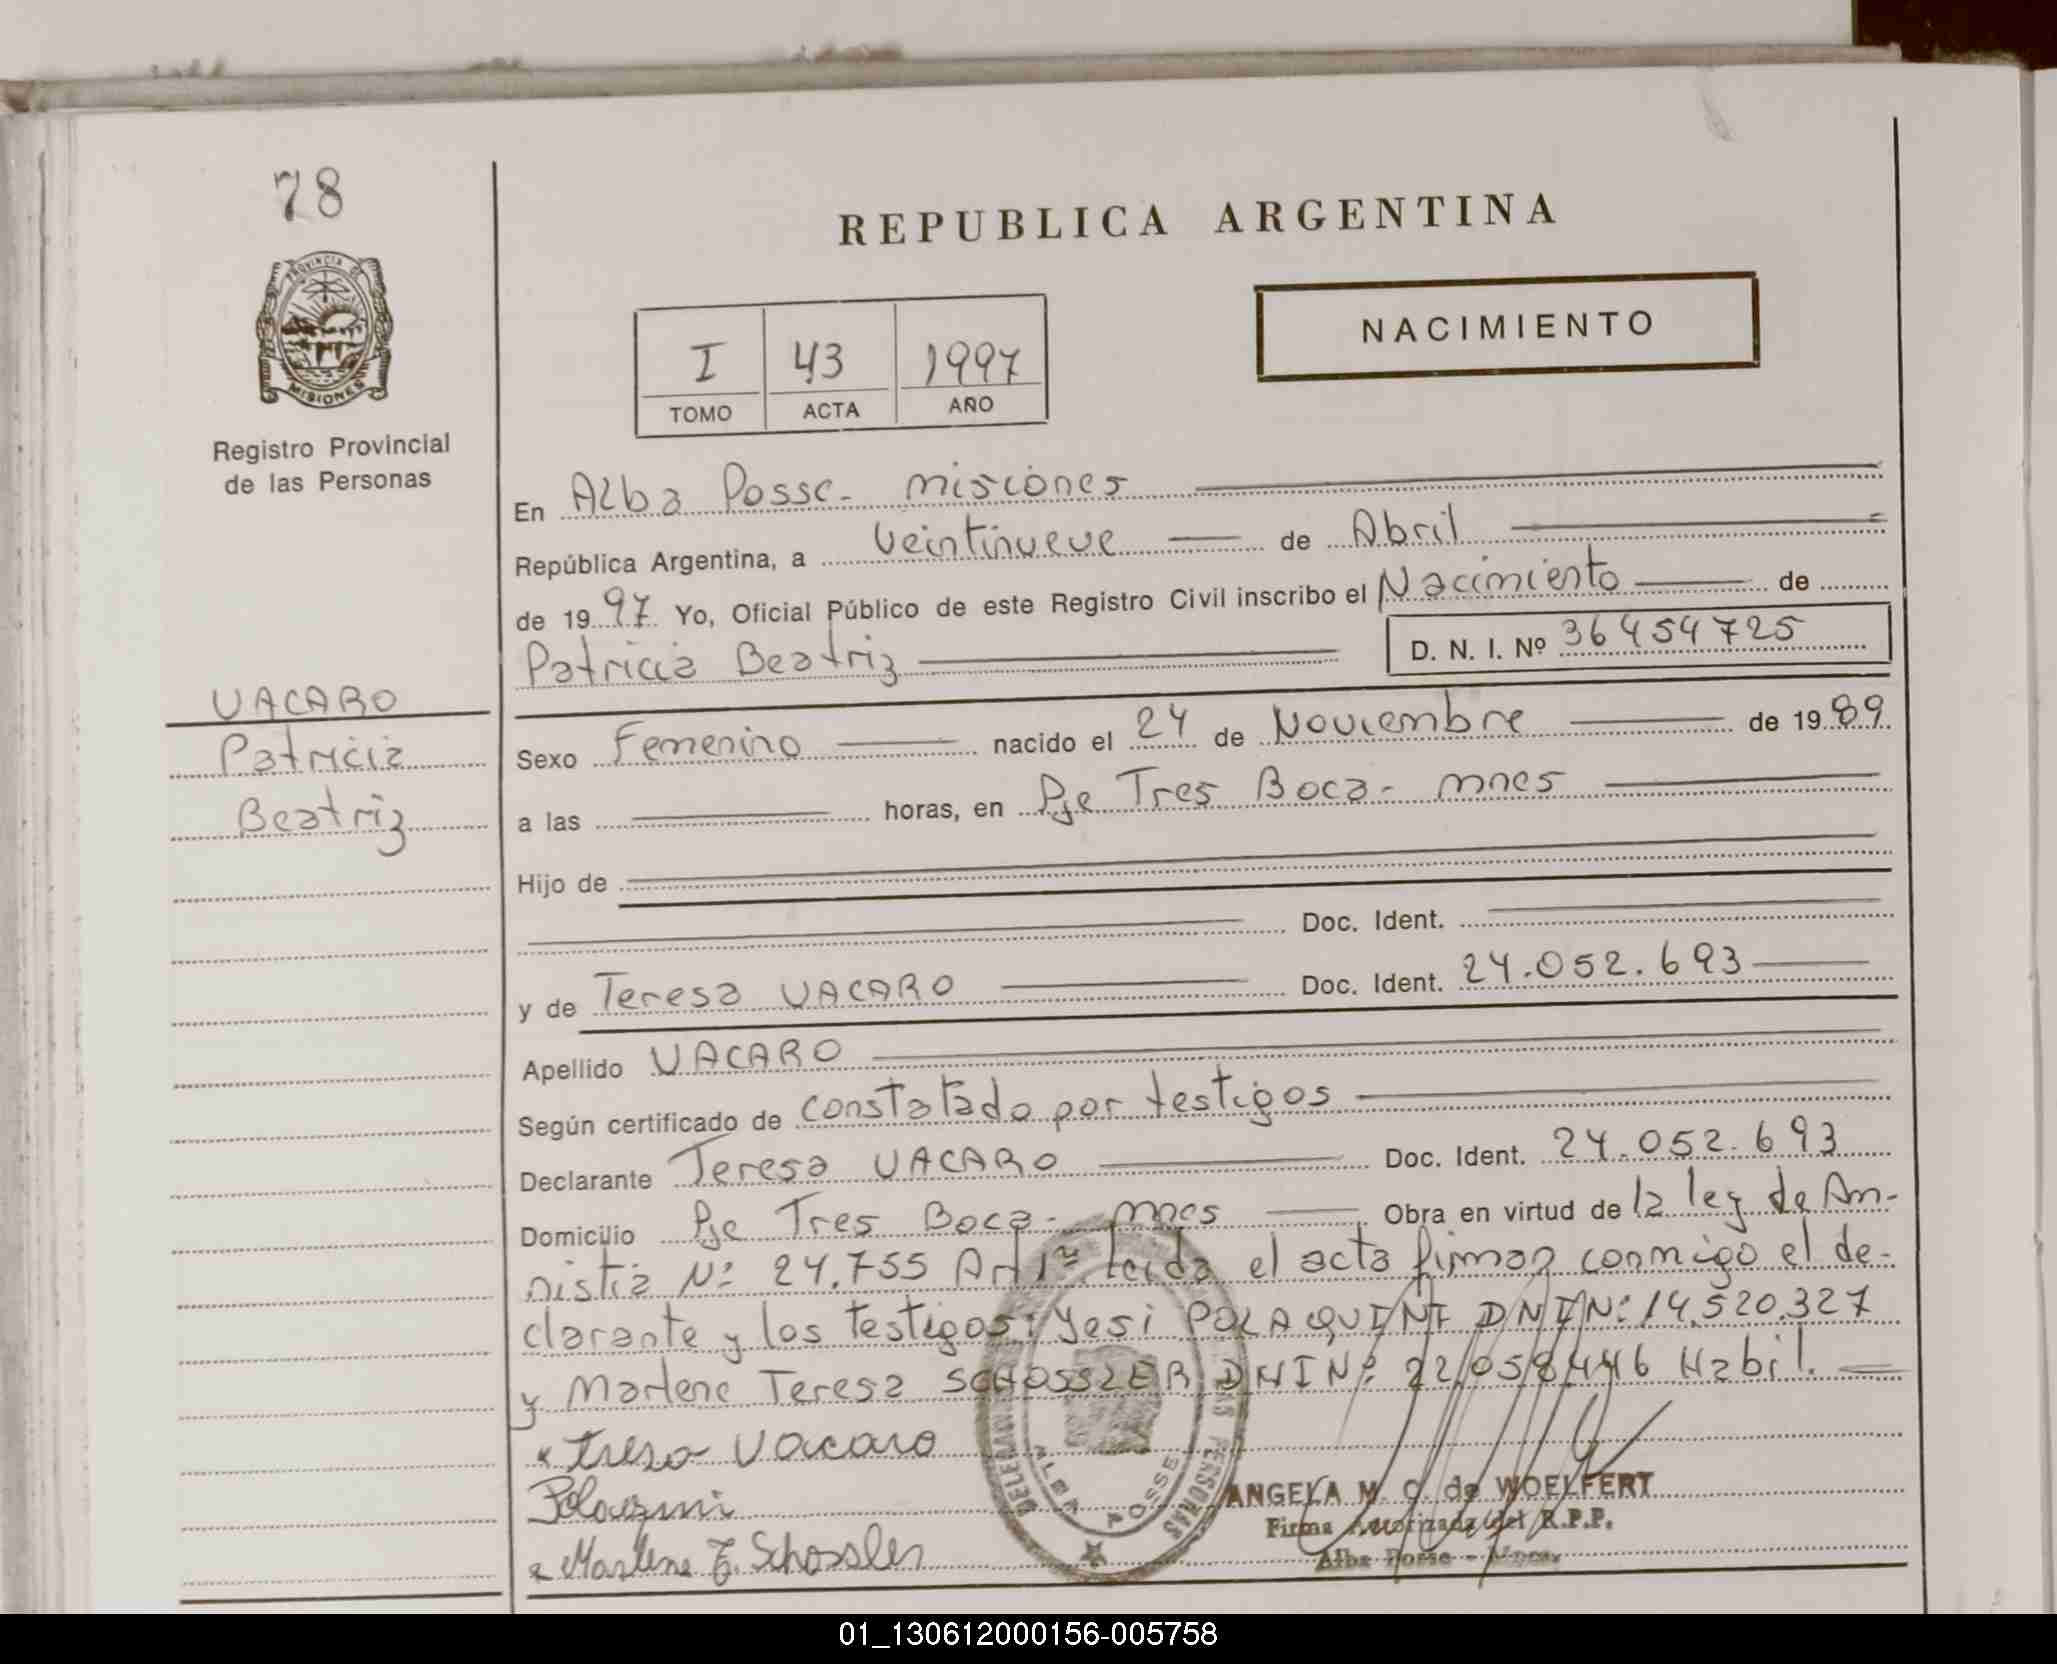 78
PROVINCIA DE
MISIONES
Registro Provincial
de las Personas
REPUBLICA ARGENTINA
NACIMIENTO
I 43 1997
TOMO ACTA AÑO
En Alba Posse - misiones
República Argentina, a veintinueve de Abril
de 1997 Yo, Oficial Público de este Registro Civil inscribo el Nacimiento de
Patricia Beatriz D. N. I. Nº 36454725
VACARO
Patricia
Beatriz
Sexo Femenino nacido el 24 de Noviembre de 1989
a las horas, en Pje Tres Boca - mnes
Hijo de
Doc. Ident.
y de Teresa VACARO Doc. Ident. 24.052.693
Apellido VACARO
Según certificado de constatado por testigos
Declarante Teresa VACARO Doc. Ident. 24.052.693
Domicilio Pje Tres Boca - mnes Obra en virtud de la ley de Am-
nistia Nº 24.755 Art 1º leida el acta firman conmigo el de-
clarante y los testigos: Yesi POLAQUINI DNI Nº 14.520.327
y Marlene Teresa SCHOSSLER DNI Nº 22.058.446 Habil.
Treso Vacaro
Polaquini
Marlene T. Schossler
PERSONAS
ALBA POSSE
ANGELA M. C. de WOELFERT
Firma Autorizada del R.P.P.
Alba Posse - Mnes.
01_130612000156-005758